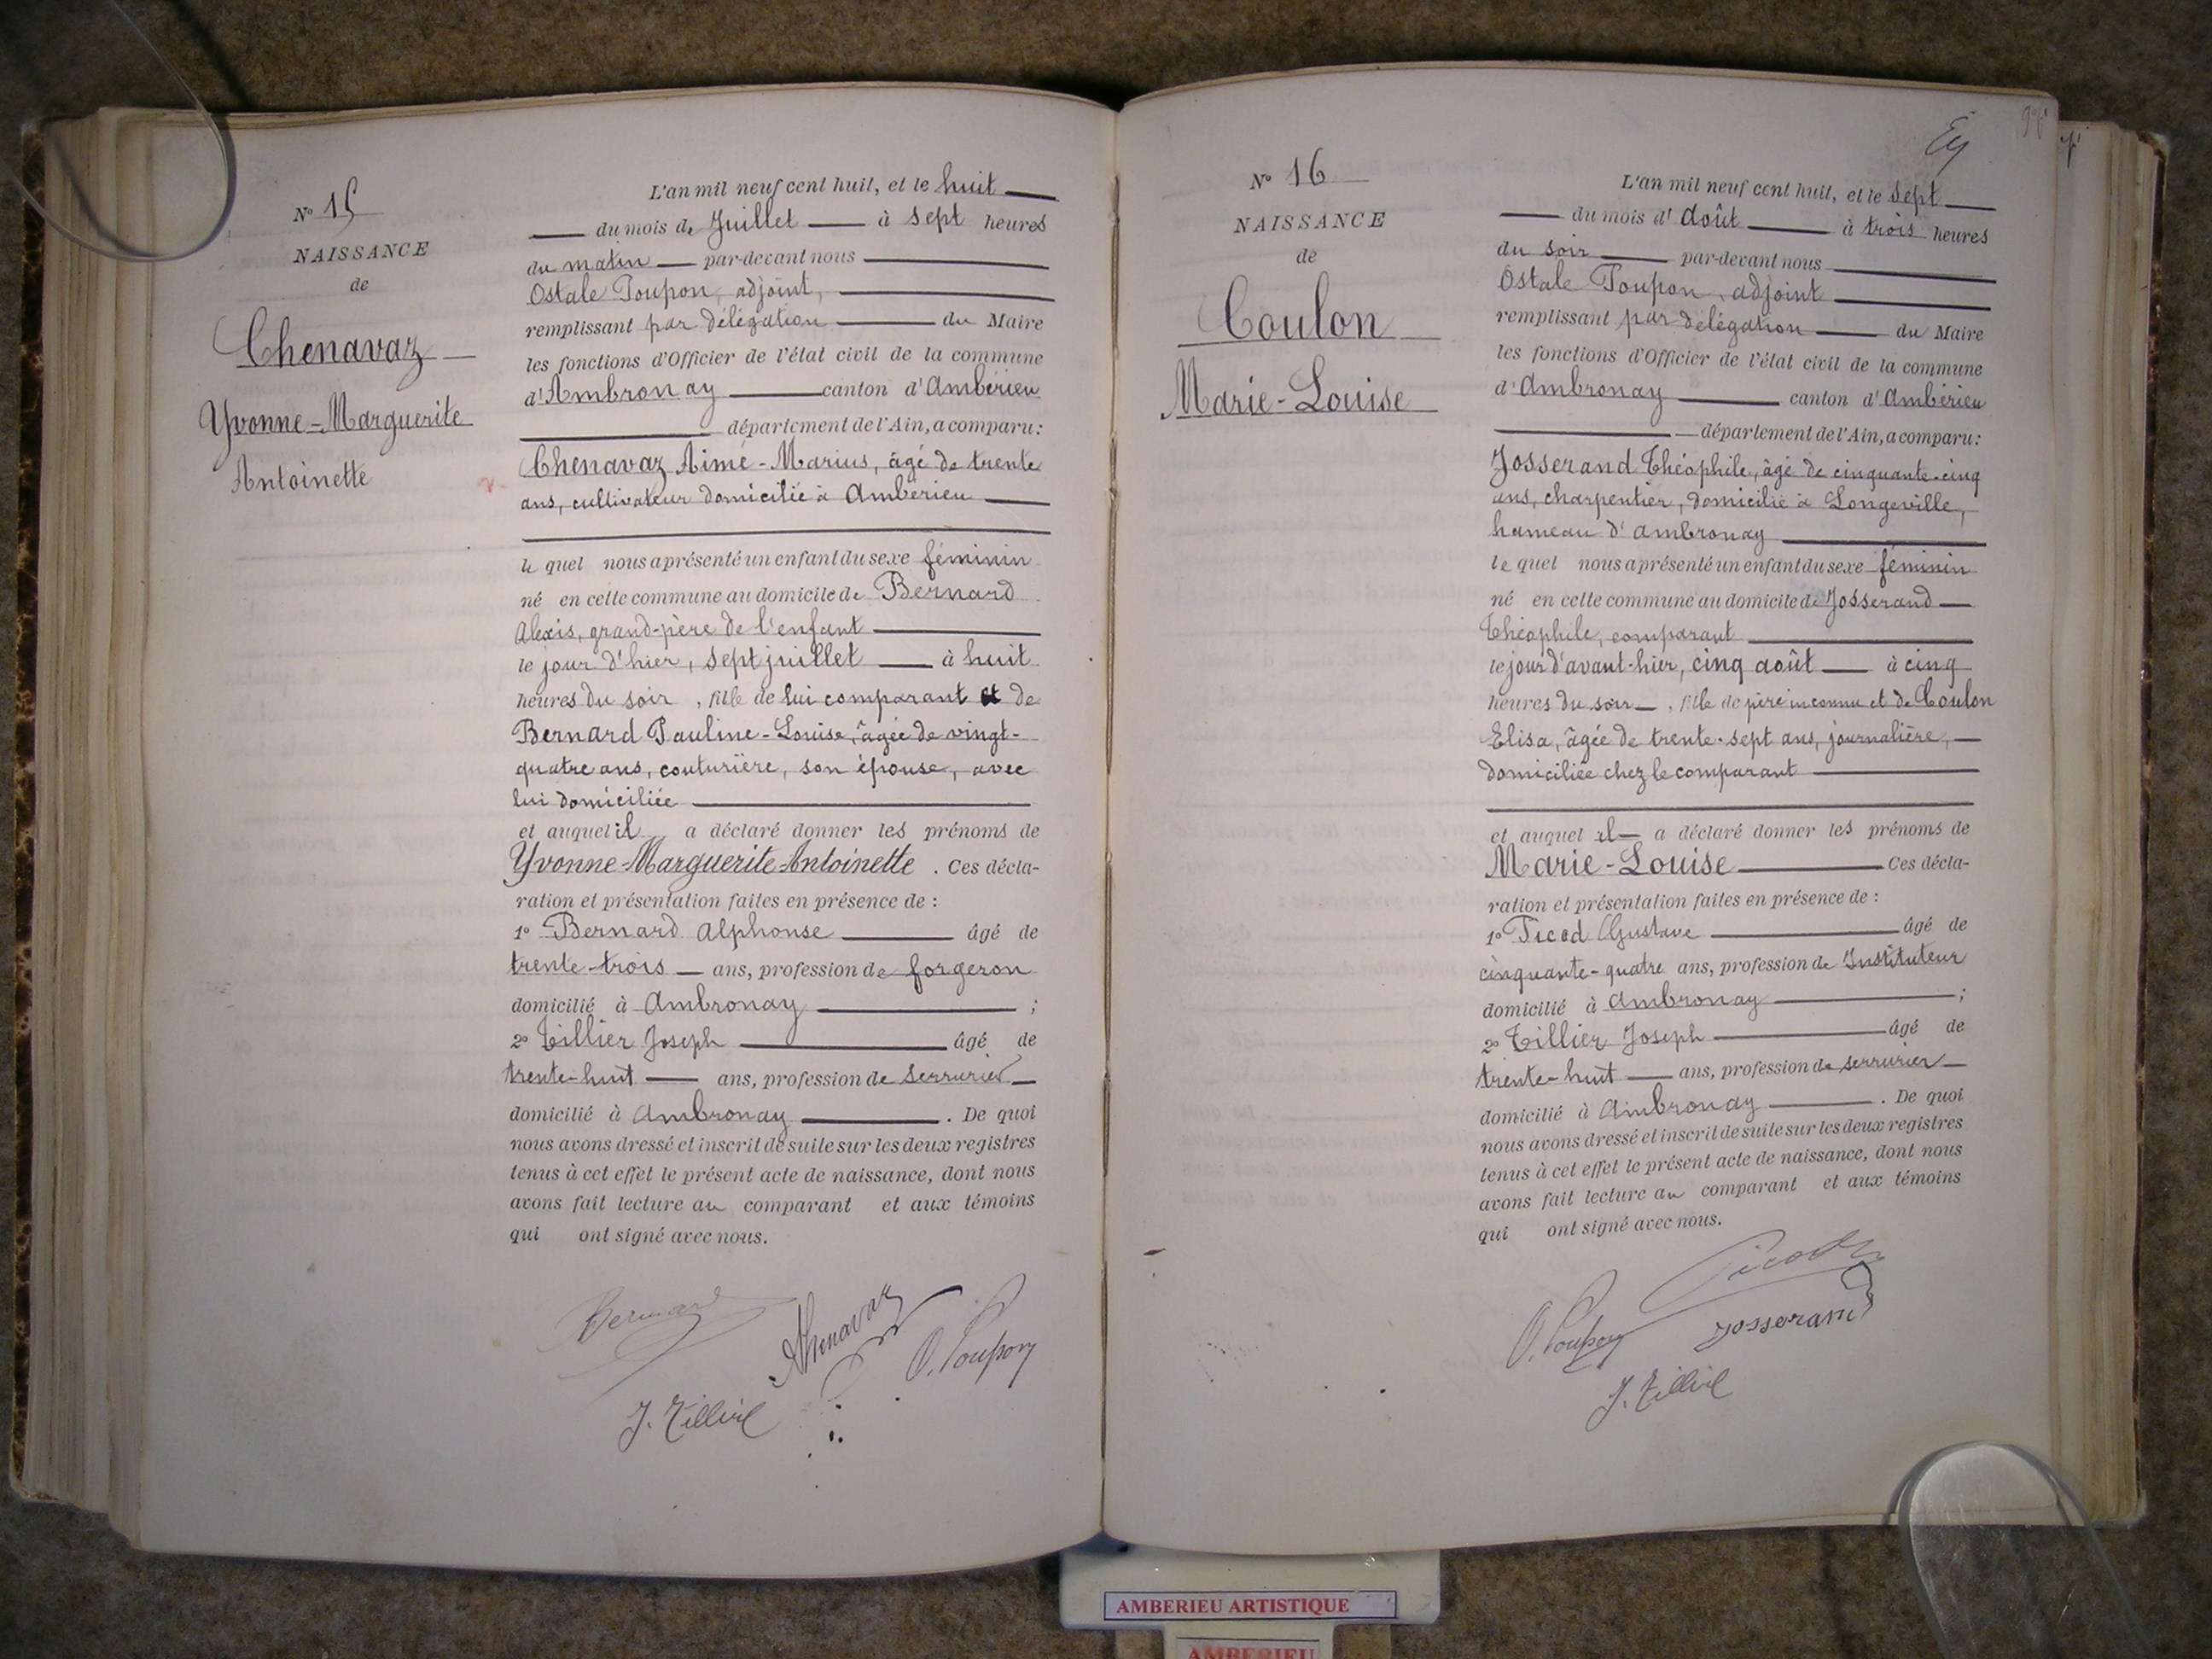 N° 15
NAISSANCE
de
Chenavaz
Yvonne-Marguerite
Antoinette
L'an mil neuf cent huit, et le huit
du mois de Juillet à sept heures
du matin par-devant nous
Ostale Poupon, adjoint,
remplissant par délégation du Maire
les fonctions d'Officier de l'état civil de la commune
d'Ambronay canton d'Ambérieu
département de l'Ain, a comparu:
Chenavaz Aimé-Marius, âgé de trente
ans, cultivateur domicilié à Ambérieu
le quel nous a présenté un enfant du sexe féminin
né en cette commune au domicile de Bernard
Alexis, grand-père de l'enfant
le jour d'hier, sept juillet à huit
heures du soir, fille de lui comparant et de
Bernard Pauline-Louise, âgée de vingt-
quatre ans, couturière, son épouse, avec
lui domiciliée
et auquel il a déclaré donner les prénoms de
Yvonne-Marguerite-Antoinette. Ces décla-
ration et présentation faites en présence de :
1° Bernard Alphonse âgé de
trente-trois ans, profession de forgeron
domicilié à Ambronay ;
2° Tillier Joseph âgé de
trente-huit ans, profession de serrurier
domicilié à Ambronay. De quoi
nous avons dressé et inscrit de suite sur les deux registres
tenus à cet effet le présent acte de naissance, dont nous
avons fait lecture au comparant et aux témoins
qui ont signé avec nous.
Bernard
Chenavaz
O. Poupon
J. Tillier
N° 16
NAISSANCE
de
Coulon
Marie-Louise
L'an mil neuf cent huit, et le sept
du mois d'Août à trois heures
du soir par-devant nous
Ostale Poupon, adjoint
remplissant par délégation du Maire
les fonctions d'Officier de l'état civil de la commune
d'Ambronay canton d'Ambérieu
département de l'Ain, a comparu:
Josserand Théophile, âgé de cinquante-cinq
ans, charpentier, domicilié à Longeville,
hameau d'Ambronay
le quel nous a présenté un enfant du sexe féminin
né en cette commune au domicile de Josserand
Théophile, comparant
le jour d'avant-hier, cinq août à cinq
heures du soir, fille de père inconnu et de Coulon
Elisa, âgée de trente-sept ans, journalière,
domiciliée chez le comparant
et auquel il a déclaré donner les prénoms de
Marie-Louise Ces décla-
ration et présentation faites en présence de :
1° Picod Gustave âgé de
cinquante-quatre ans, profession de Instituteur
domicilié à Ambronay ;
2° Tillier Joseph âgé de
trente-huit ans, profession de serrurier
domicilié à Ambronay. De quoi
nous avons dressé et inscrit de suite sur les deux registres
tenus à cet effet le présent acte de naissance, dont nous
avons fait lecture au comparant et aux témoins
qui ont signé avec nous.
Picod
O. Poupon
Josserand
J. Tillier
AMBERIEU ARTISTIQUE
AMBERIEU